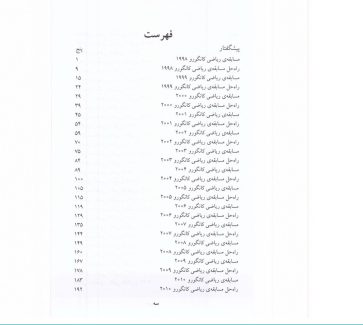 فهرست
پیشگفتار پنج
مسابقه‌ی ریاضی کانگورو ۱۹۹۸ ۱
راه‌حل مسابقه‌ی ریاضی کانگورو ۱۹۹۸ ۹
مسابقه‌ی ریاضی کانگورو ۱۹۹۹ ۱۵
راه‌حل مسابقه‌ی ریاضی کانگورو ۱۹۹۹ ۲۴
مسابقه‌ی ریاضی کانگورو ۲۰۰۰ ۲۹
راه‌حل مسابقه‌ی ریاضی کانگورو ۲۰۰۰ ۳۹
مسابقه‌ی ریاضی کانگورو ۲۰۰۱ ۴۵
راه‌حل مسابقه‌ی ریاضی کانگورو ۲۰۰۱ ۵۴
مسابقه‌ی ریاضی کانگورو ۲۰۰۲ ۵۹
راه‌حل مسابقه‌ی ریاضی کانگورو ۲۰۰۲ ۷۰
مسابقه‌ی ریاضی کانگورو ۲۰۰۳ ۷۵
راه‌حل مسابقه‌ی ریاضی کانگورو ۲۰۰۳ ۸۴
مسابقه‌ی ریاضی کانگورو ۲۰۰۴ ۸۹
راه‌حل مسابقه‌ی ریاضی کانگورو ۲۰۰۴ ۱۰۰
مسابقه‌ی ریاضی کانگورو ۲۰۰۵ ۱۰۵
راه‌حل مسابقه‌ی ریاضی کانگورو ۲۰۰۵ ۱۱۵
مسابقه‌ی ریاضی کانگورو ۲۰۰۶ ۱۱۹
راه‌حل مسابقه‌ی ریاضی کانگورو ۲۰۰۶ ۱۲۹
مسابقه‌ی ریاضی کانگورو ۲۰۰۷ ۱۳۵
راه‌حل مسابقه‌ی ریاضی کانگورو ۲۰۰۷ ۱۴۴
مسابقه‌ی ریاضی کانگورو ۲۰۰۸ ۱۴۹
راه‌حل مسابقه‌ی ریاضی کانگورو ۲۰۰۸ ۱۶۰
مسابقه‌ی ریاضی کانگورو ۲۰۰۹ ۱۶۷
راه‌حل مسابقه‌ی ریاضی کانگورو ۲۰۰۹ ۱۷۸
مسابقه‌ی ریاضی کانگورو ۲۰۱۰ ۱۸۳
راه‌حل مسابقه‌ی ریاضی کانگورو ۲۰۱۰ ۱۹۲
سه